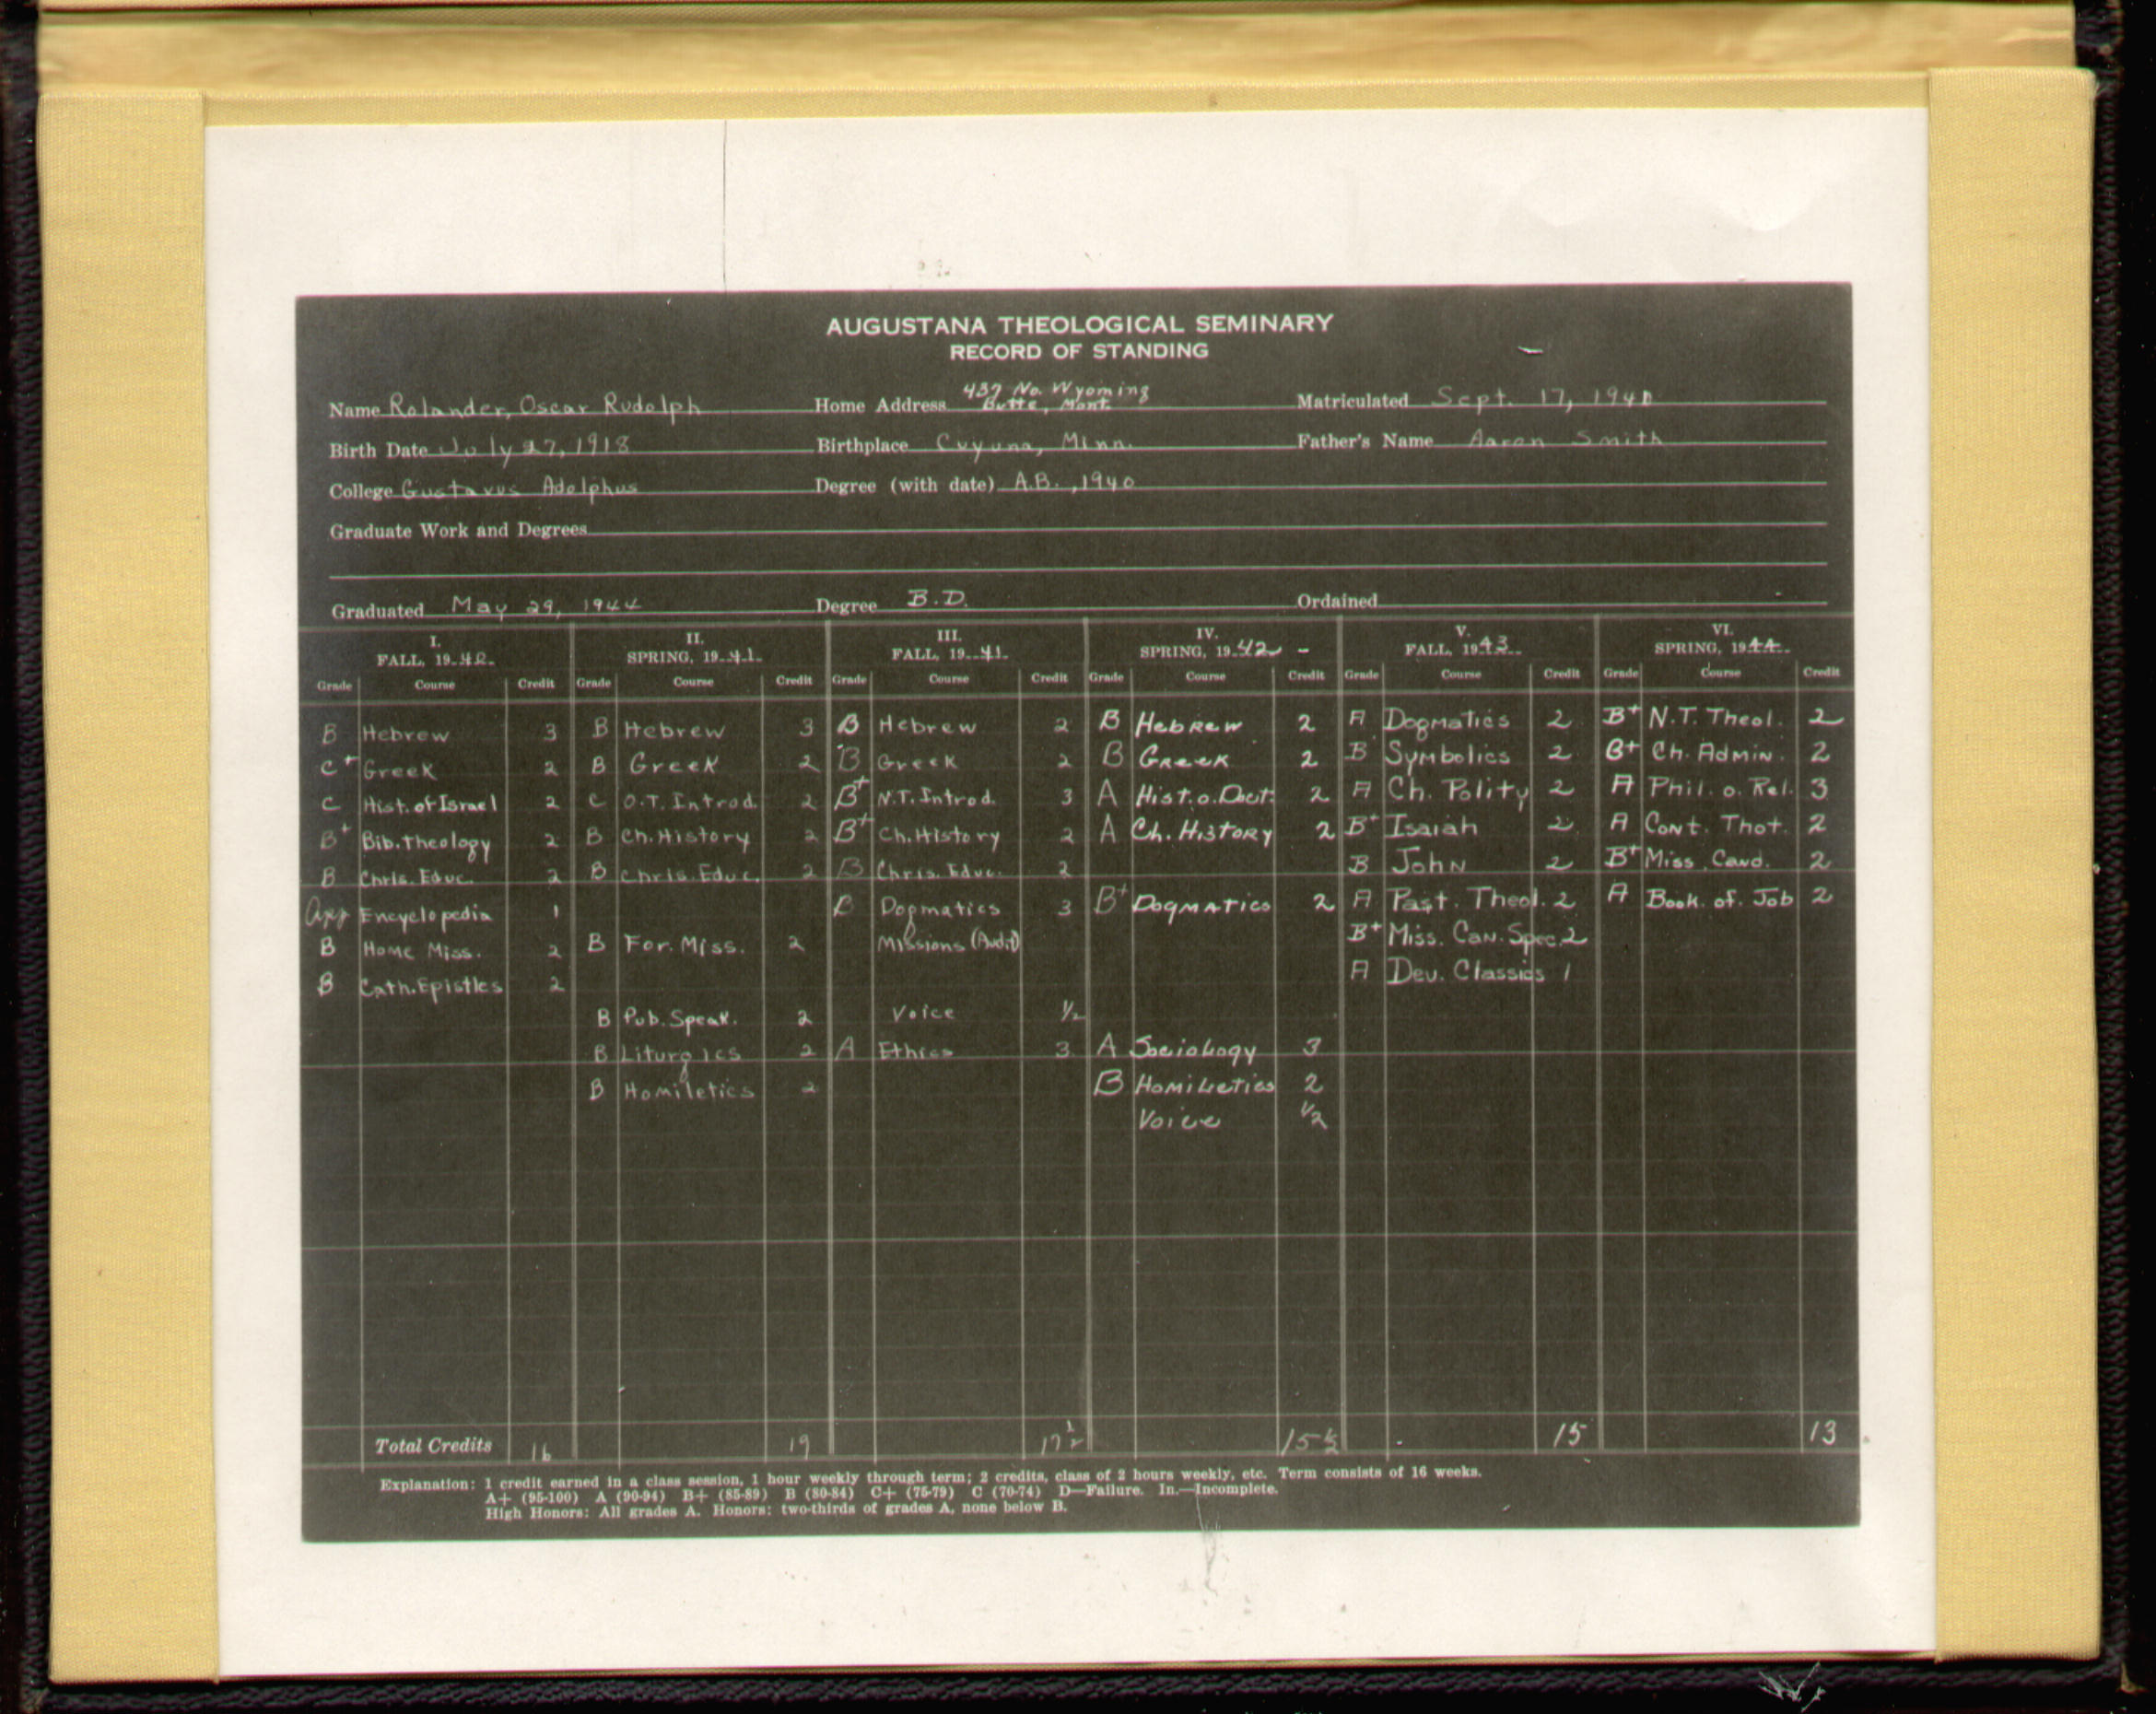 AUGUSTANA THEOLOGICAL SEMINARY
RECORD OF STANDING
Name Rolander, Oscar Rudolph Home Address 437 No. Wyoming Butte, Mont. Matriculated Sept. 17, 1940
Birth Date July 27, 1918 Birthplace Cuyuna, Minn. Father's Name Aaron Smith
College Gustavus Adolphus Degree (with date) A.B., 1940
Graduate Work and Degrees
Graduated May 29, 1944 Degree B.D. Ordained
I. II. III. IV. V. VI.
FALL, 1940 SPRING, 1941 FALL, 1941 SPRING, 1942 - FALL, 1943 SPRING, 1944
Grade Course Credit Grade Course Credit Grade Course Credit Grade Course Credit Grade Course Credit Grade Course Credit
B Hebrew 3 B Hebrew 3 B Hebrew 2 B Hebrew 2 A Dogmatics 2 B+ N.T. Theol. 2
C+ Greek 2 B Greek 2 B Greek 2 B Greek 2 B Symbolics 2 B+ Ch. Admin. 2
C Hist. of Israel 2 C O.T. Introd. 2 B+ N.T. Introd. 3 A Hist. o. Doct. 2 A Ch. Polity 2 A Phil. o. Rel. 3
B+ Bib. Theology 2 B Ch. History 2 B+ Ch. History 2 A Ch. History 2 B+ Isaiah 2 A Cont. Thot. 2
B Chris. Educ. 2 B Chris. Educ. 2 B Chris. Educ. 2 B John 2 B+ Miss. Cand. 2
App Encyclopedia 1 B Dogmatics 3 B+ Dogmatics 2 A Past. Theol. 2 A Book. of. Job 2
B Home Miss. 2 B For. Miss. 2 Missions (Audit) B+ Miss. Can. Spec. 2
B Cath. Epistles 2 A Dev. Classics 1
B Pub. Speak. 2 Voice 1/2
B Liturgics 2 A Ethics 3 A Sociology 3
B Homiletics 2 B Homiletics 2
Voice 1/2
Total Credits 16 19 17 1/2 15 1/2 15 13
Explanation: 1 credit earned in a class session, 1 hour weekly through term; 2 credits, class of 2 hours weekly, etc. Term consists of 16 weeks.
A+ (95-100) A (90-94) B+ (85-89) B (80-84) C+ (75-79) C (70-74) D—Failure. In.—Incomplete.
High Honors: All grades A. Honors: two-thirds of grades A, none below B.